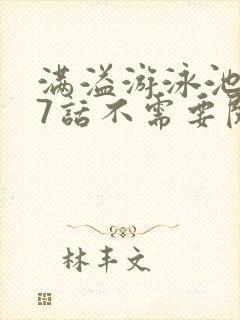 满溢游泳池
7話不需要
林丰文